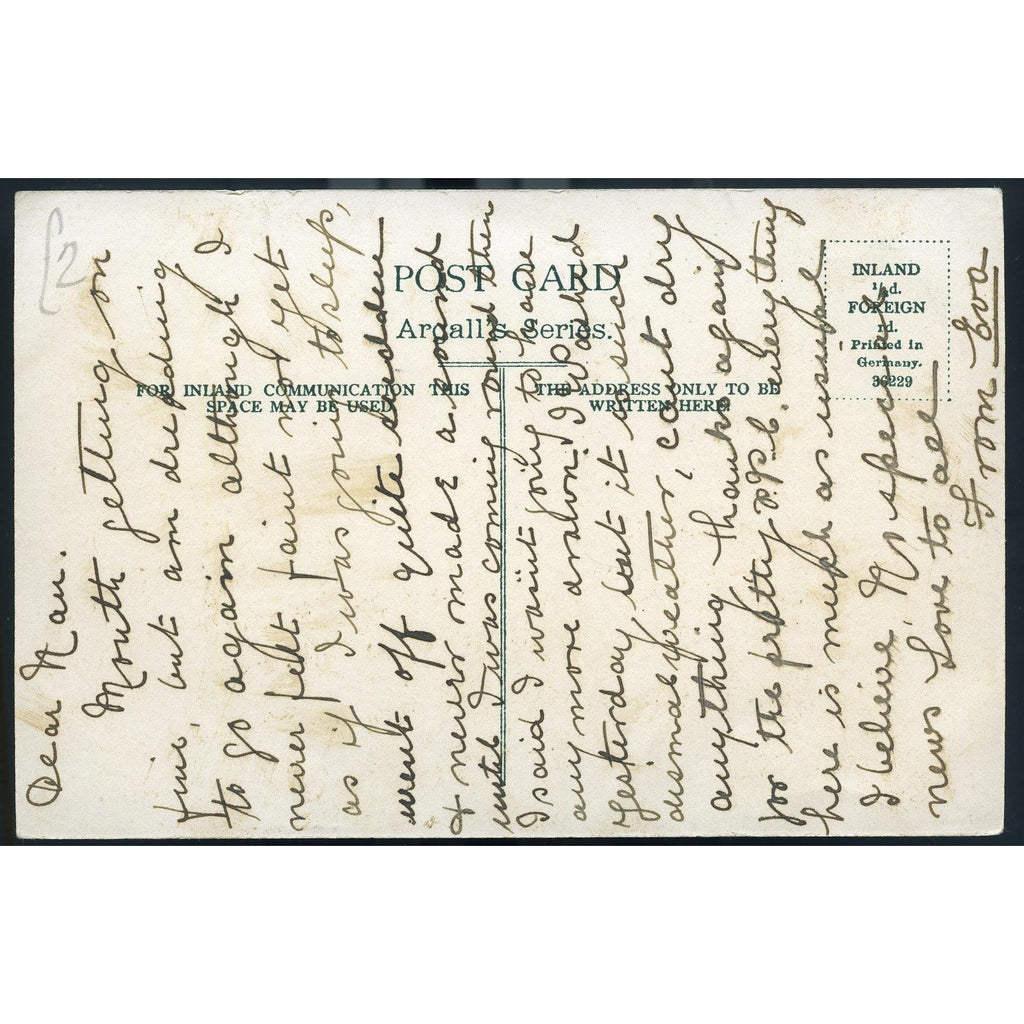 £2
POST CARD
Argall's Series.
FOR INLAND COMMUNICATION THIS
SPACE MAY BE USED
THE ADDRESS ONLY TO BE
WRITTEN HERE.
INLAND
½d.
FOREIGN
1d.
Printed in
Germany.
36229
Dear Nan.
Mouth getting on
fine, but am dreading
to go again although I
never felt faint nor yet
as if I was going to sleep,
went off quite sudden
& never made a sound
until I was coming round then
I said I won't going to have
any more I washed
yesterday but it is such
dismal weather, cant dry
anything. Thanks again
for the pretty P.P.C. everything
here is much as usual
I believe, No special
news Love to all
From Eva